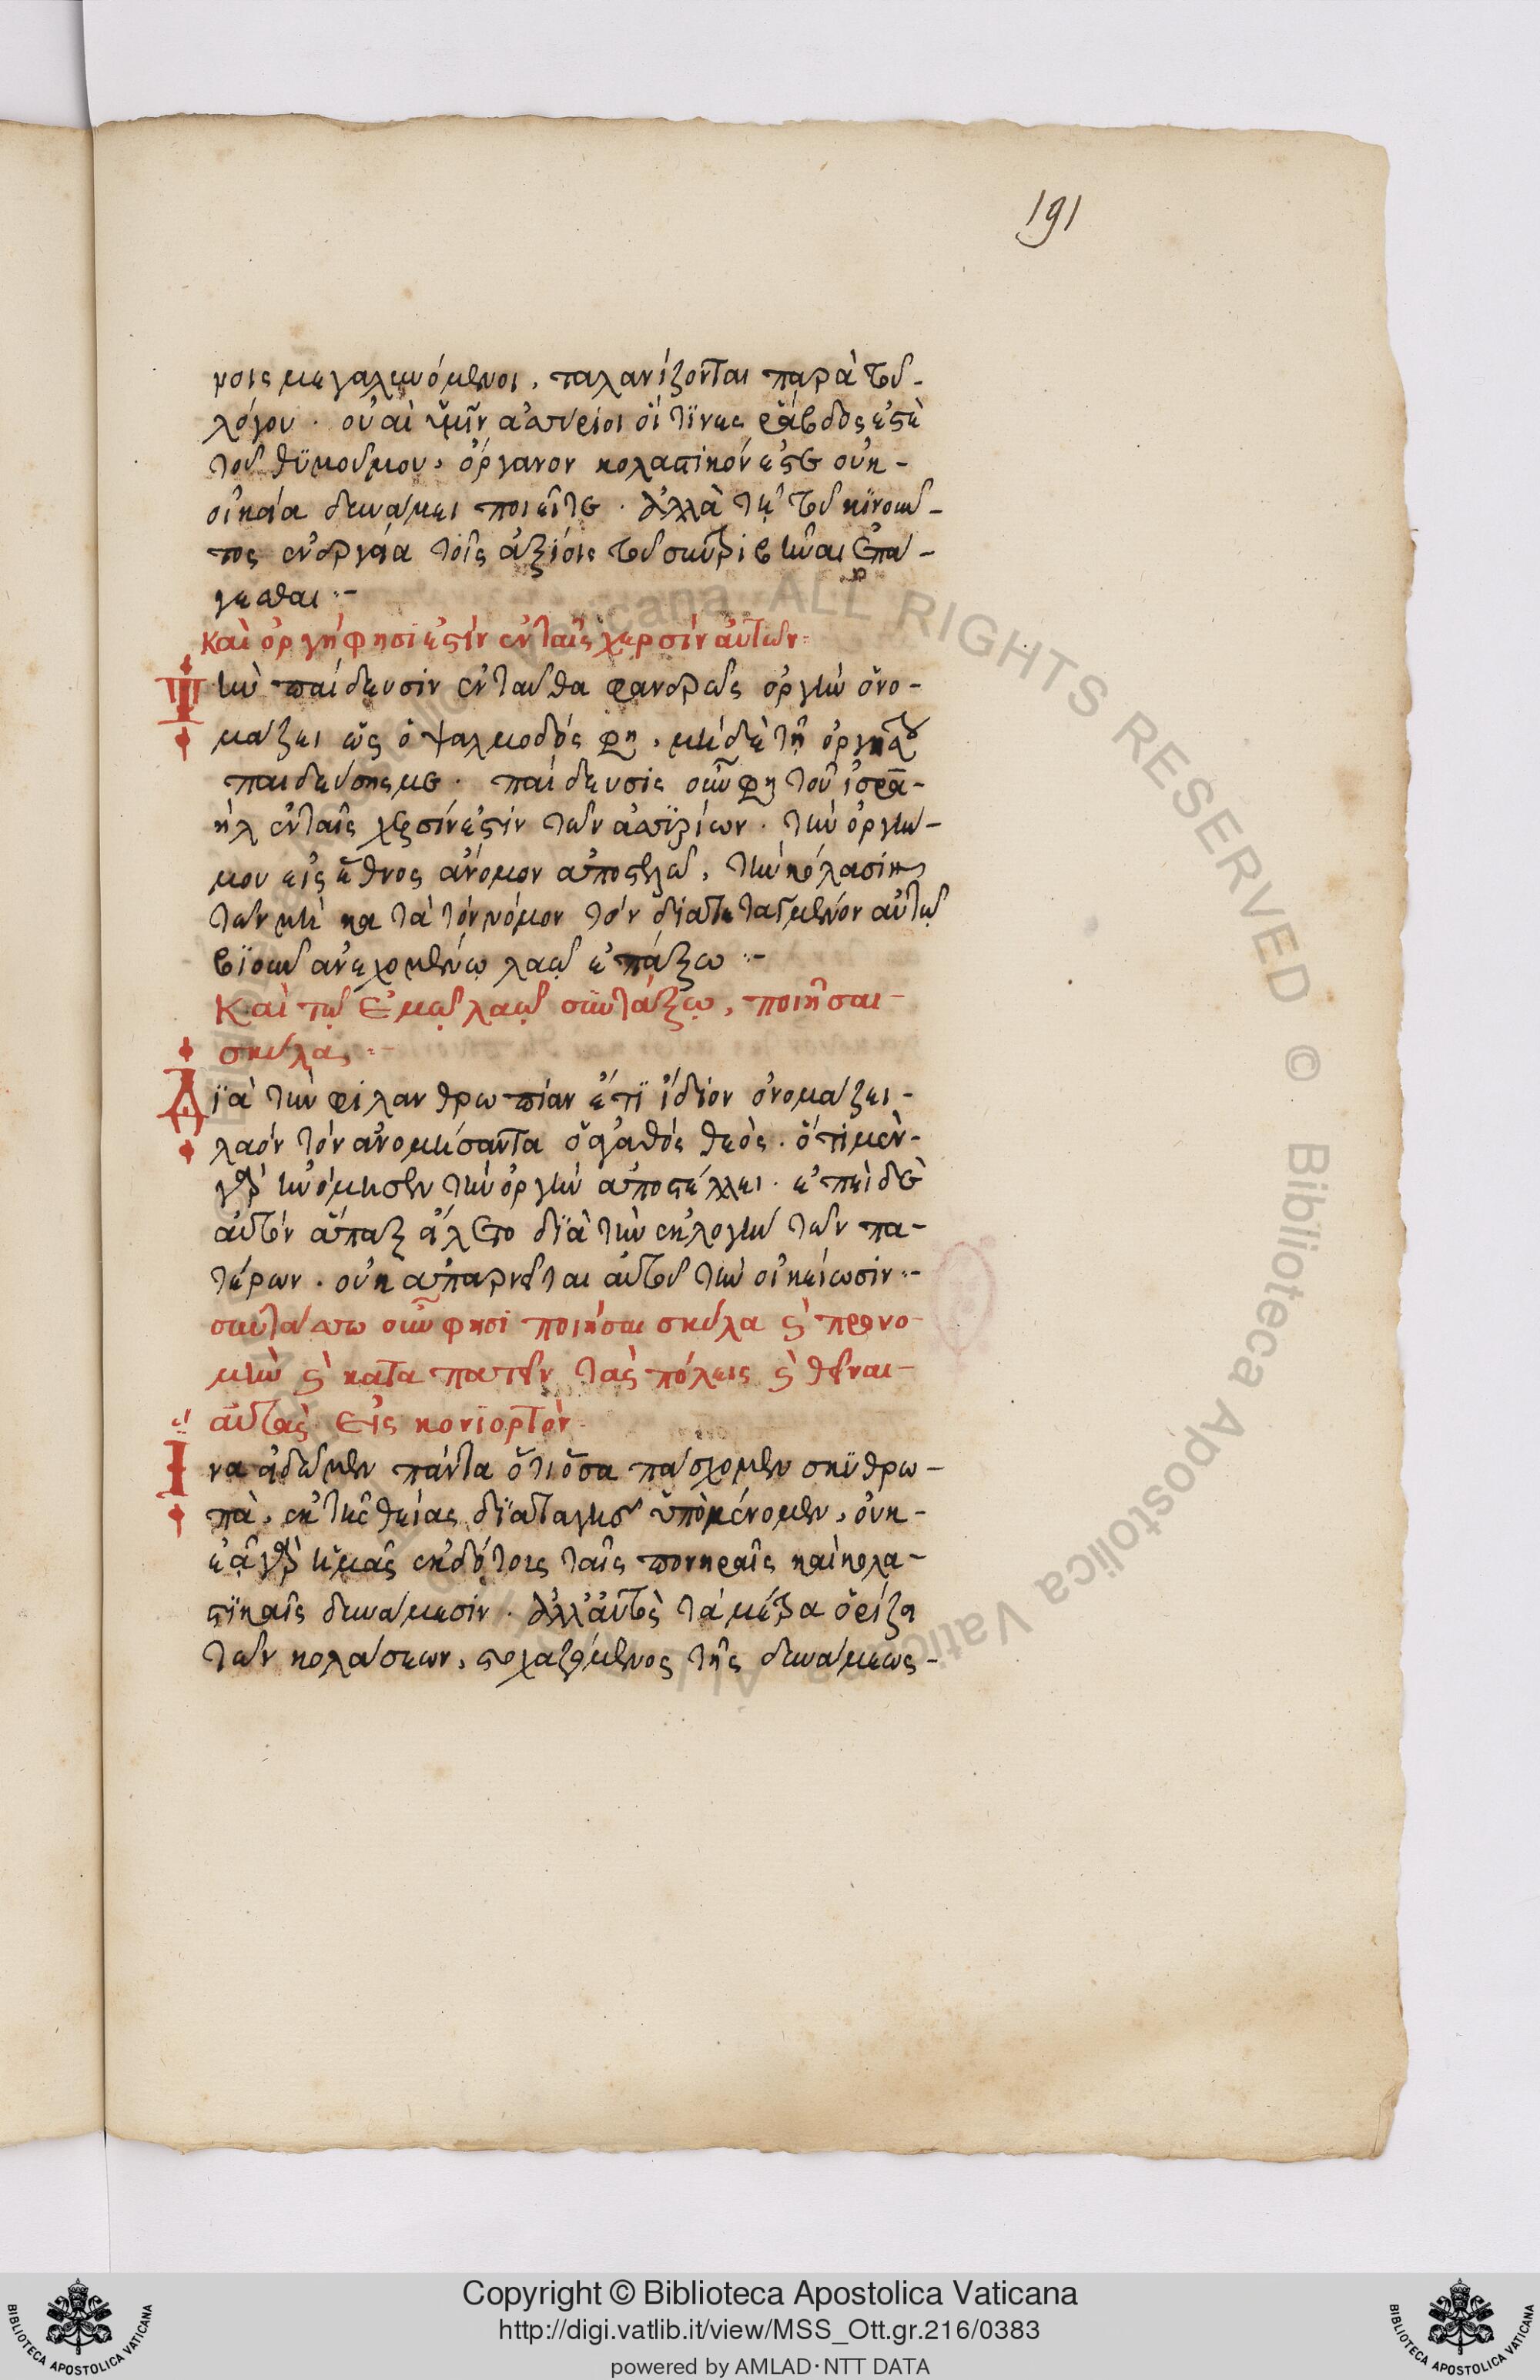 191
νοις μεγαλυνόμενοι, ταλανίζονται παρὰ τοῦ
λόγου · οὐαὶ ὑμῖν ἀσσύριοι οἵτινες ῥάβδος ἐστὲ
τοῦ θυμοῦ μου, ὄργανον κολαστικόν ἐστε οὐκ
οἰκεία δυνάμει ποιεῖτε · ἀλλὰ τῇ τοῦ κινοῦν
τος ἐνεργεία τοῖς ἀξίοις τοῦ συντριβῆναι ἐπά
γεσθαι :-
Καὶ ὀργή φησι ἐστὶν ἐν ταῖς χερσὶν αὐτῶν :
Τὴν παίδευσιν ἐνταῦθα φανερῶς ὀργὴν ὀνο
μάζει ὡς ὁ ψαλμωδός φη, μὴ δὲ τῇ ὀργῇ σου
παιδεύσης με · παίδευσις οὖν φη τοῦ ἰσρα
ὴλ ἐν ταῖς χερσίν ἐστιν τῶν ἀσσυρίων · τὴν ὀργήν
μου εἰς ἔθνος ἄνομον ἀποστελῶ, τὴν κόλασιν
τῶν μὴ κατὰ τὸν νόμον τὸν διατεταγμένον αὐτῷ
βιοῦν ἀνεχομένω λαῷ ἐπάξω :-
Καὶ τῷ ἐμῷ λαῷ συντάξω, ποιῆσαι
σκῦλα :-
Διὰ τὴν φιλανθρωπίαν ἔτι ἴδιον ὀνομάζει
λαὸν τὸν ἀνομήσαντα ὁ ἀγαθὸς θεός · ὅτι μὲν
γὰρ ἠνόμησεν τὴν ὀργὴν ἀποστέλλει · ἐπεὶ δὲ
αὐτὸν ἅπαξ εἵλετο διὰ τὴν ἐκλογὴν τῶν πα
τέρων · οὐκ ἀπαρνεῖται αὐτοῦ τὴν οἰκείωσιν :-
συντάσσω οὖν φησι ποιῆσαι σκῦλα καὶ προνο
μὴν καὶ καταπατεῖν τὰς πόλεις καὶ θεῖναι
αὐτὰς εἰς κονιορτόν
Ἵνα εἰδῶμεν πάντα ὅτι ὅσα πάσχομεν σκυθρω
πὰ, ἐκ τῆς θείας διαταγῆς ὑπομένομεν, οὐκ
ἐᾷ γὰρ ἡμᾶς ἐκδότους ταῖς πονηραῖς καὶ κολα
στικαῖς δυνάμεσιν · ἀλλ' αὐτὸς τὰ μέτρα ὁρίζει
τῶν κολάσεων, στοχαζόμενος τῆς δυνάμεως
Copyright © Biblioteca Apostolica Vaticana
http://digi.vatlib.it/view/MSS_Ott.gr.216/0383
powered by AMLAD·NTT DATA